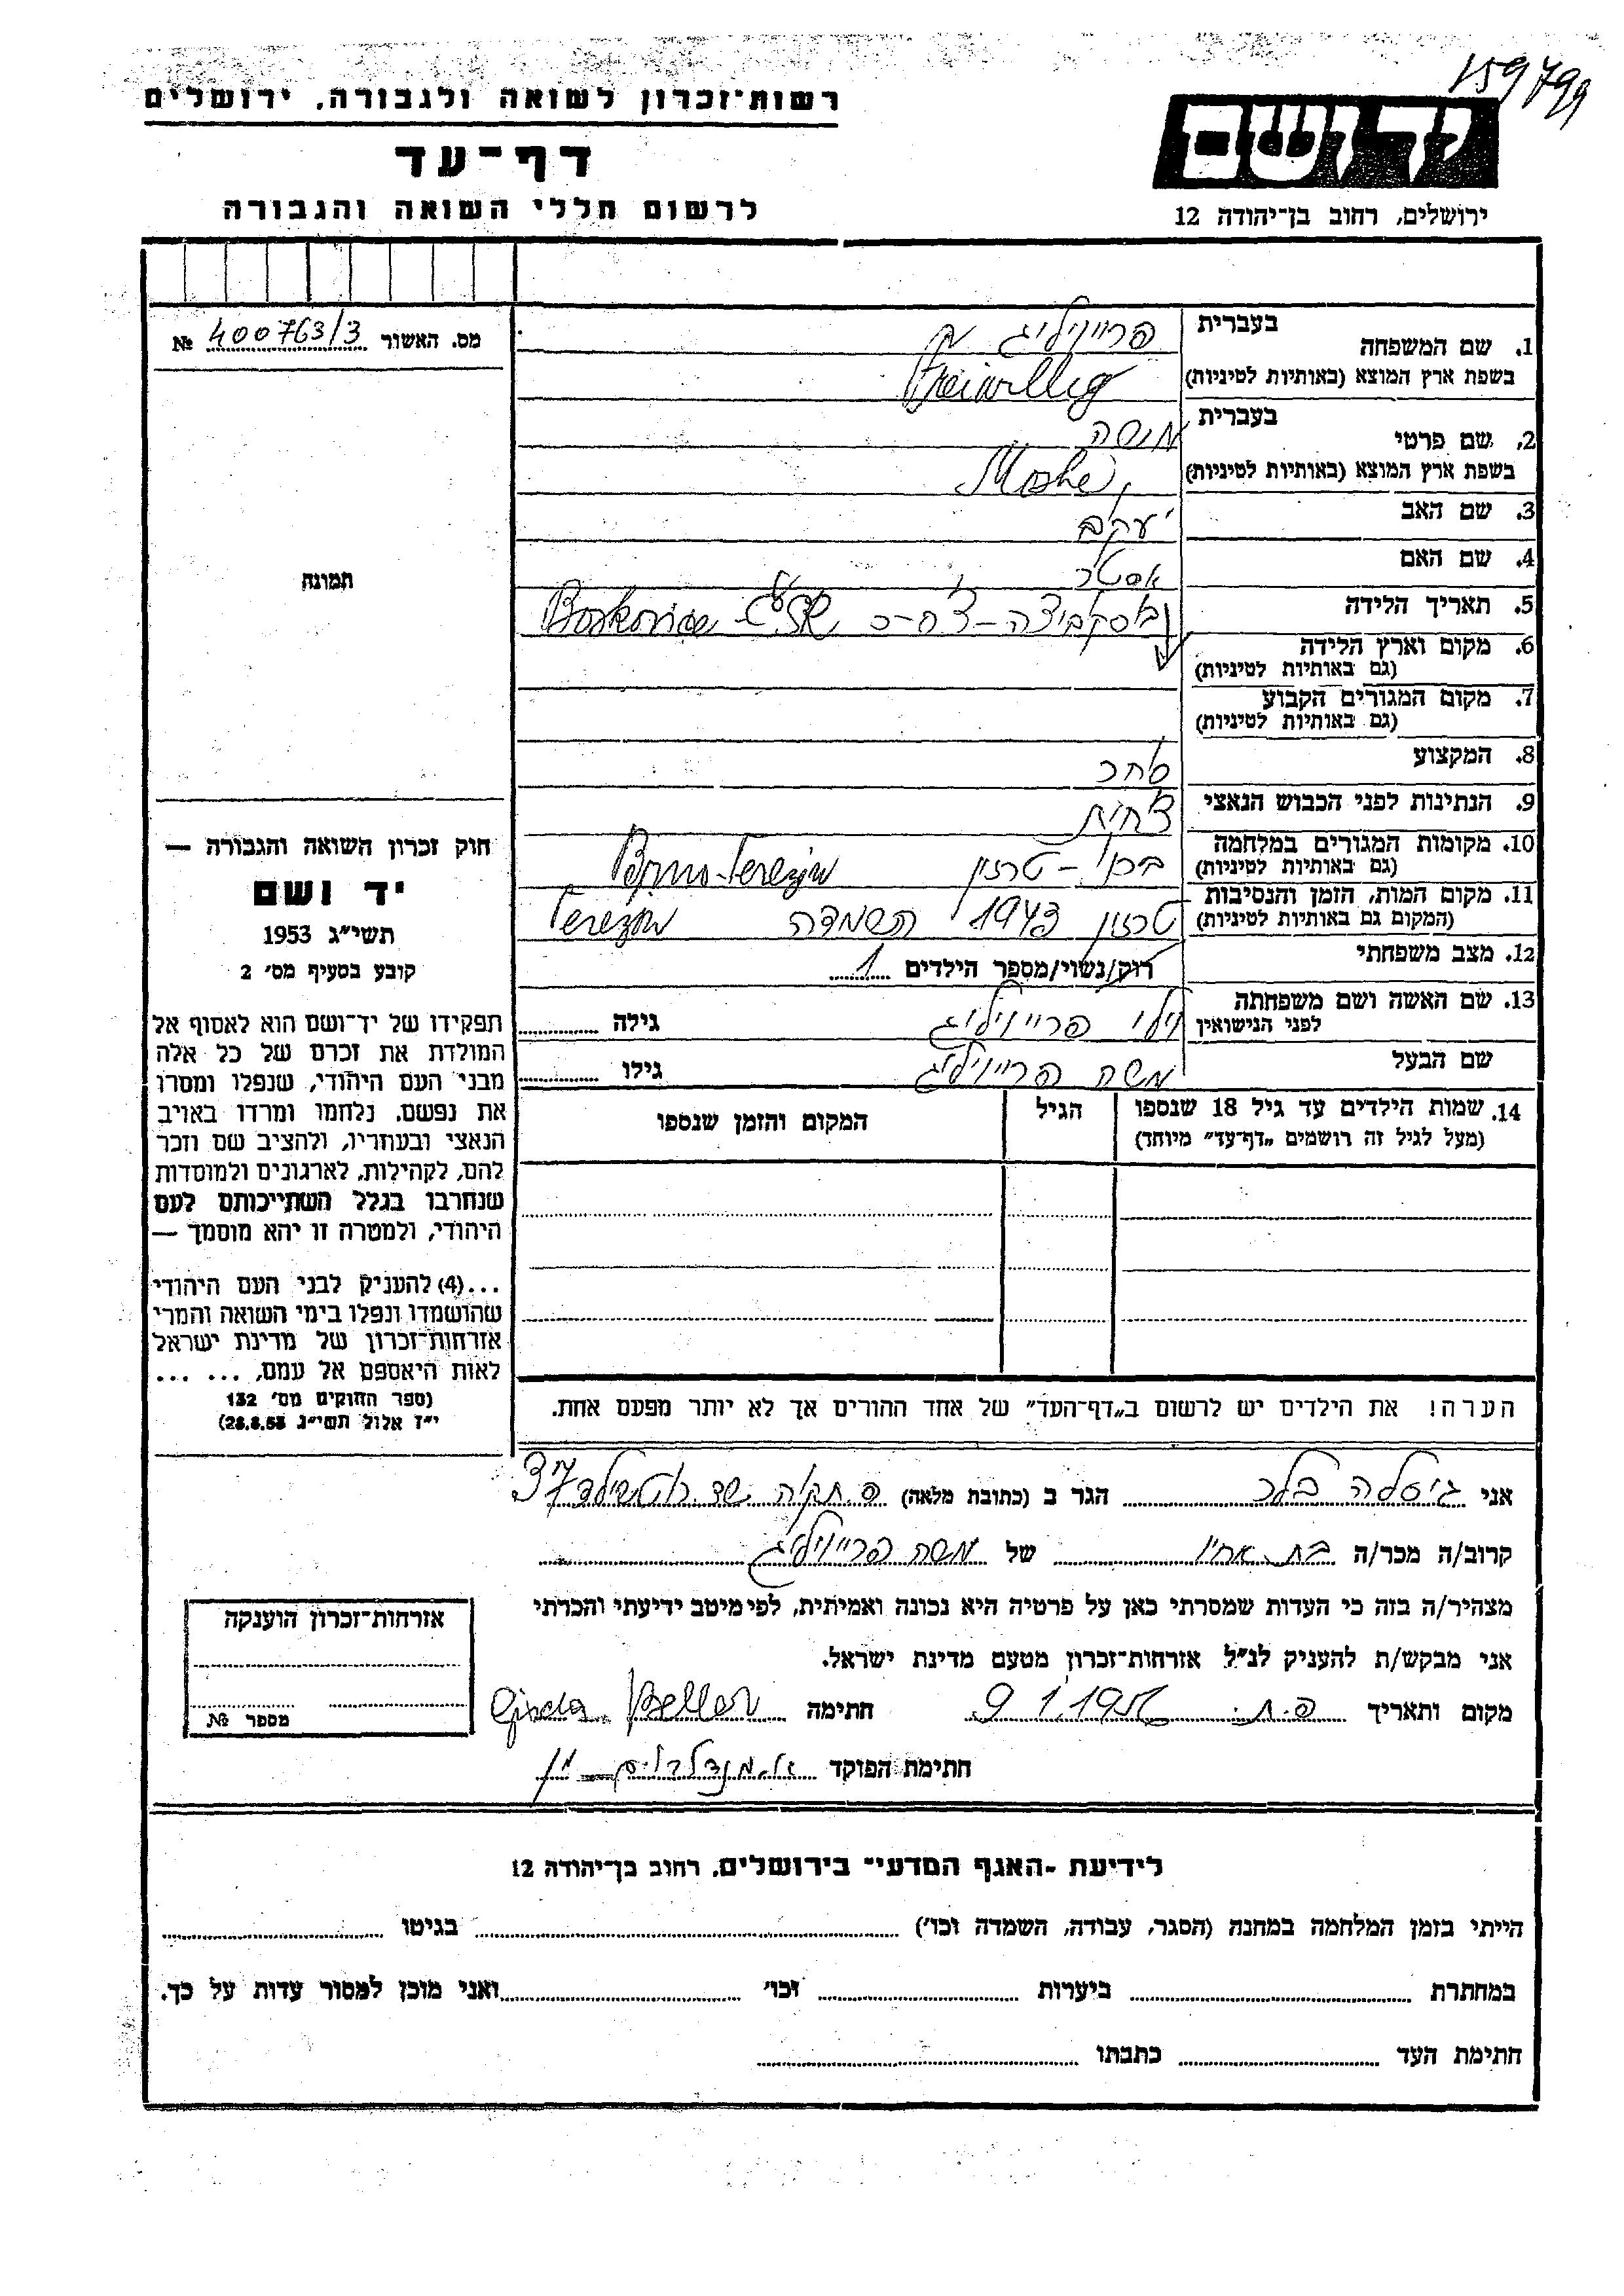 159799
רשות־זכרון לשואה ולגבורה, ירושלים
דף־עד
לרשום חללי השואה והגבורה
יד ושם
ירושלים, רחוב בן־יהודה 12
מס. האשור 400763/3 №
תמונה
1. שם המשפחה
בעברית פרייוויליג
בשפת ארץ המוצא (באותיות לטיניות) Freiwillig
2. שם פרטי
בעברית משה
בשפת ארץ המוצא (באותיות לטיניות) Moshe
3. שם האב יעקב
4. שם האם אסטר
5. תאריך הלידה
בוסקביצה - צ'ח-כ Boskovice
6. מקום וארץ הלידה
(גם באותיות לטיניות)
7. מקום המגורים הקבוע
(גם באותיות לטיניות)
8. המקצוע סוחר
9. הנתינות לפני הכבוש הנאצי צ'חית
10. מקומות המגורים במלחמה ברנו - טרזין Brno-Terezin
(גם באותיות לטיניות)
11. מקום המות, הזמן והנסיבות טרזין 1943 השמדה Terezin
(המקום גם באותיות לטיניות)
12. מצב משפחתי רוק/נשוי/מספר הילדים 1
13. שם האשה ושם משפחתה
לפני הנישואין וילי פרייוויליג גילה
שם הבעל משה פרייוויליג גילו
14. שמות הילדים עד גיל 18 שנספו
(מעל לגיל זה רושמים „דף־עד” מיוחד)
הגיל
המקום והזמן שנספו
הערה! את הילדים יש לרשום ב„דף־העד” של אחד ההורים אך לא יותר מפעם אחת.
חוק זכרון השואה והגבורה —
יד ושם
תשי״ג 1953
קובע בסעיף מס׳ 2
תפקידו של יד־ושם הוא לאסוף אל
המולדת את זכרם של כל אלה
מבני העם היהודי, שנפלו ומסרו
את נפשם, נלחמו ומרדו באויב
הנאצי ובעוזריו, ולהציב שם וזכר
להם, לקהילות, לארגונים ולמוסדות
שנחרבו בגלל השתייכותם לעם
היהודי, ולמטרה זו יהא מוסמך —
...(4) להעניק לבני העם היהודי
שהושמדו ונפלו בימי השואה והמרי
אזרחות־זכרון של מדינת ישראל
לאות היאספם אל עמם, ... ...
(ספר החוקים מס׳ 132
י״ז אלול תשי״ג 28.8.53)
אני גיסלה בלר הגר ב (כתובת מלאה) פ. תקוה שד. רוטשילד 37
קרוב/ה מכר/ה בת אחיו של משה פרייוויליג
מצהיר/ה בזה כי העדות שמסרתי כאן על פרטיה היא נכונה ואמיתית, לפי מיטב ידיעתי והכרתי
אני מבקש/ת להעניק לנ״ל אזרחות־זכרון מטעם מדינת ישראל.
מקום ותאריך פ.ת. 9.1.1956 חתימה Gisela Beller
חתימת הפוקד א. מנדלבוים
אזרחות־זכרון הוענקה
מספר №
לידיעת -האגף המדעי־ בירושלים, רחוב בן־יהודה 12
הייתי בזמן המלחמה במחנה (הסגר, עבודה, השמדה וכו׳) בגיטו
במחתרת ביערות וכו׳ ואני מוכן למסור עדות על כך.
חתימת העד כתבתו